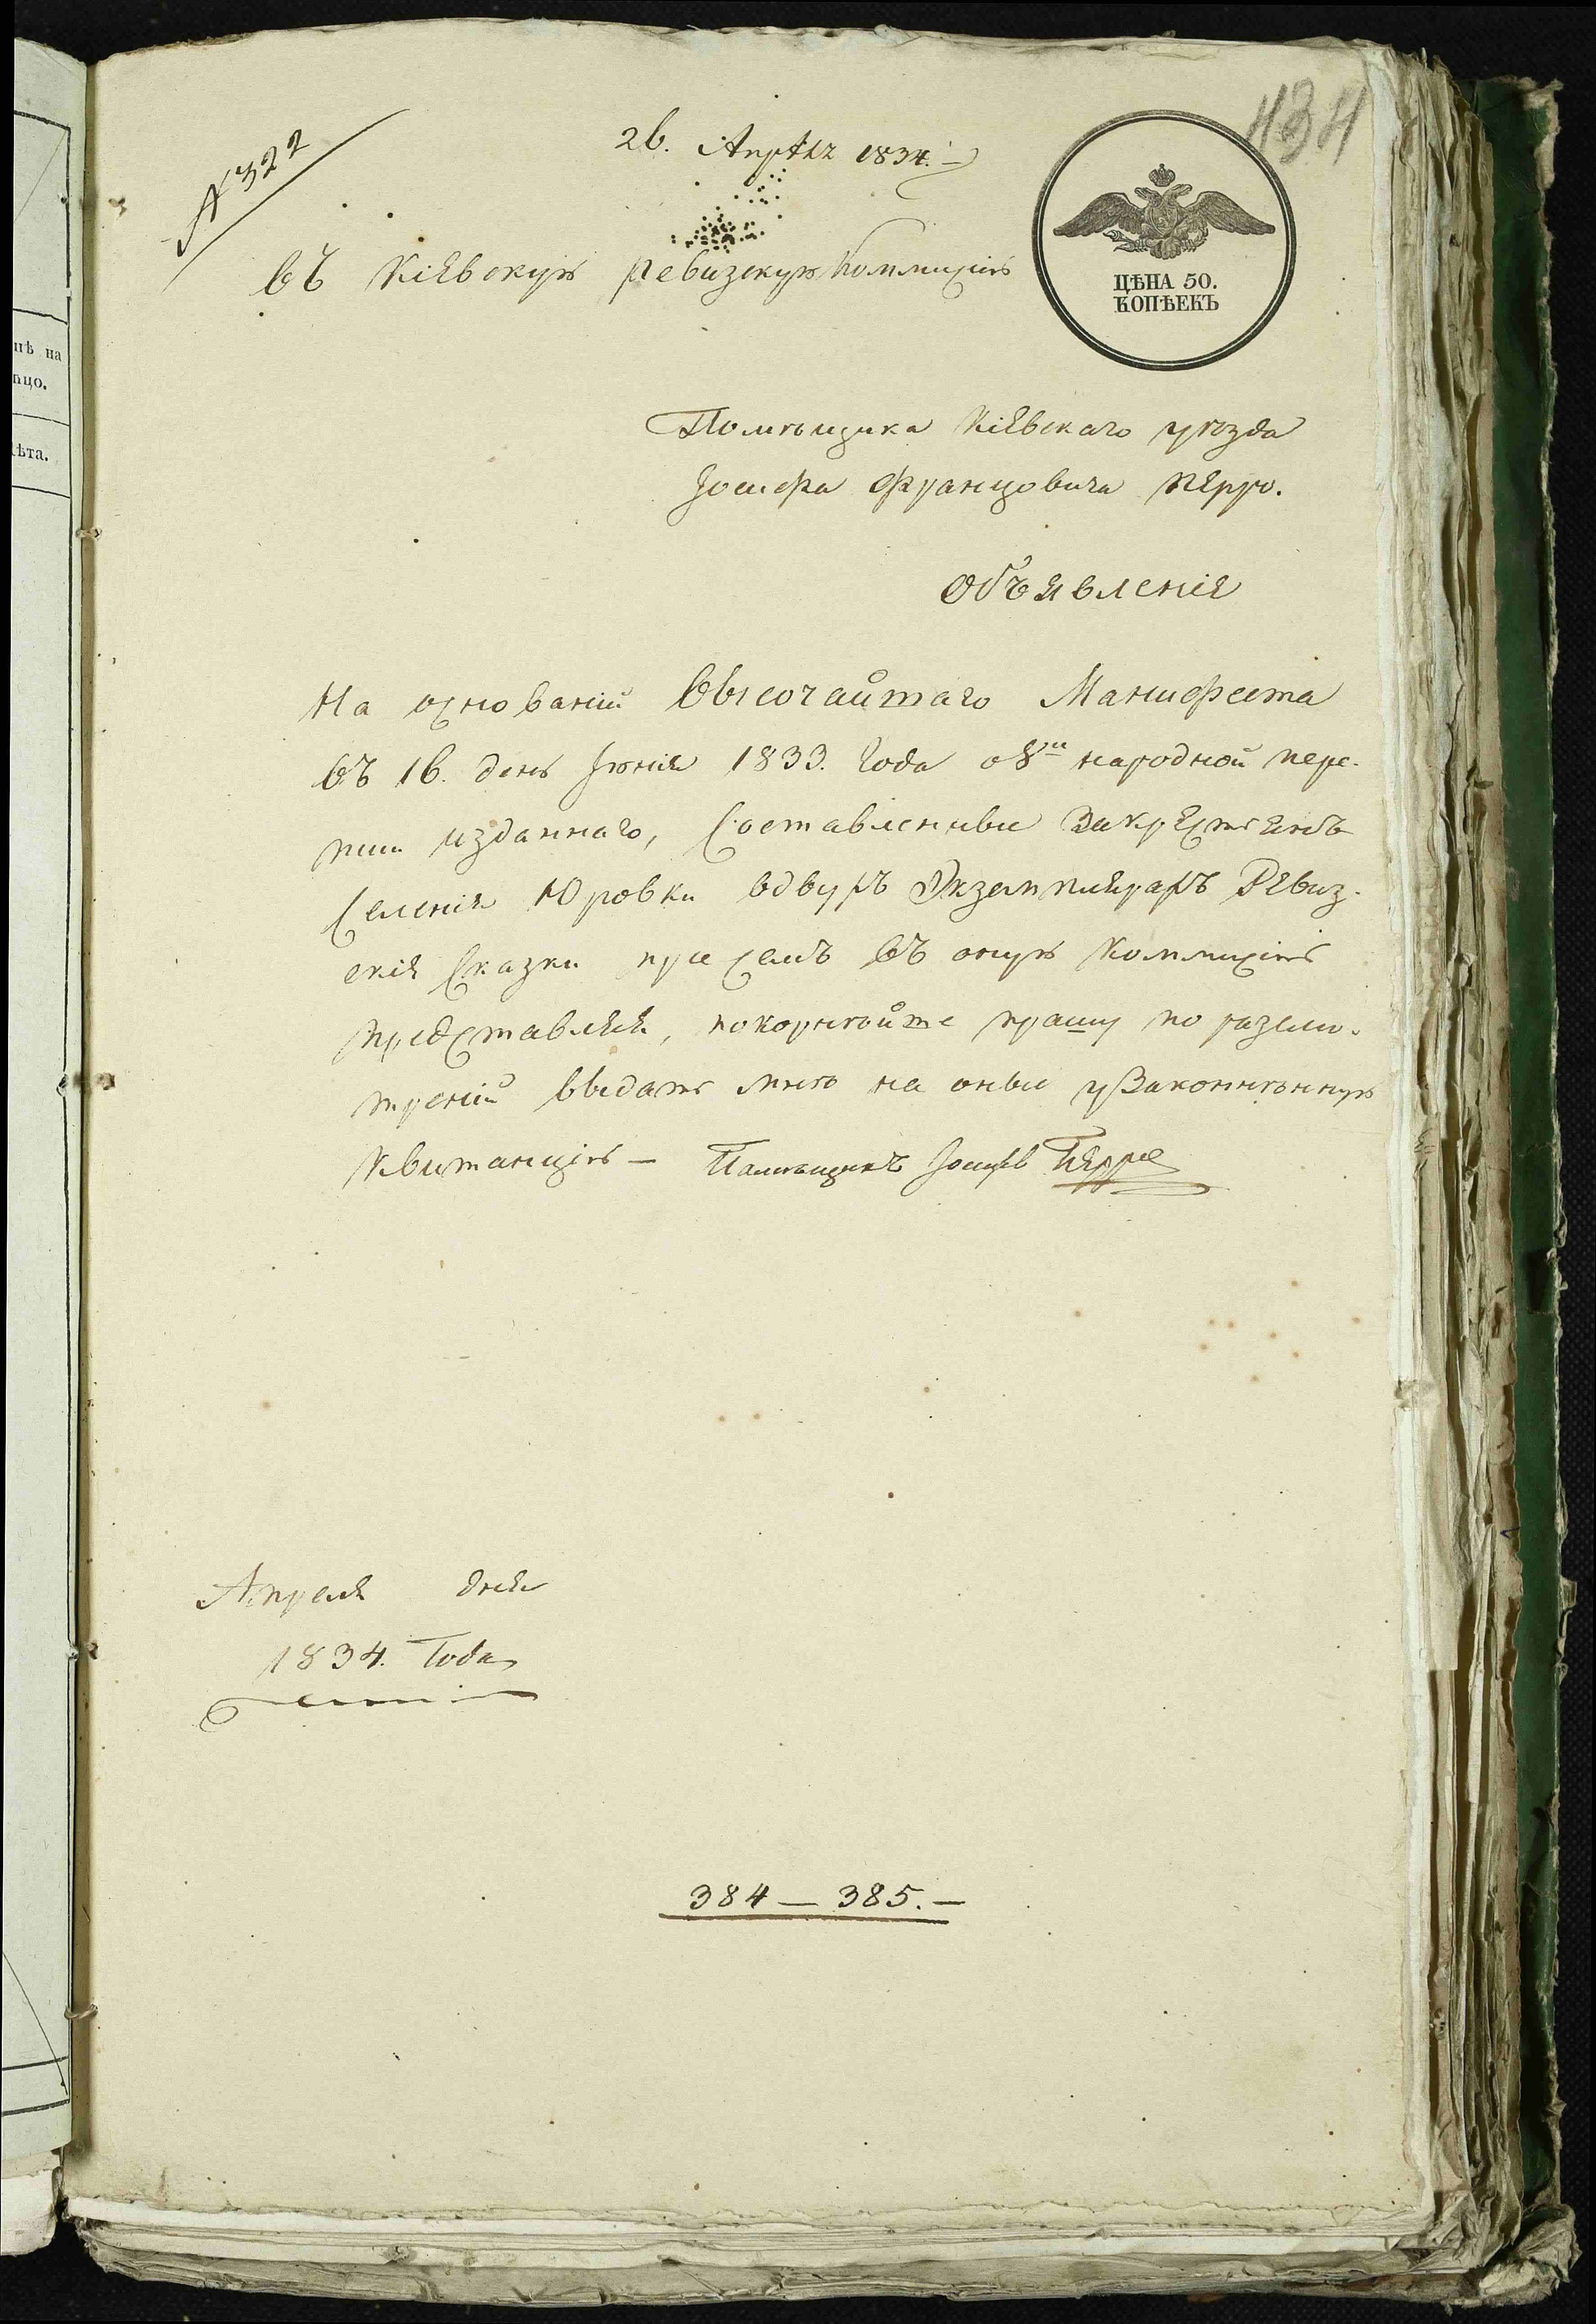 434
№ 322
26. Апрѣля 1834.
ЦѢНА 50.
КОПѢЕКЪ
въ Кіевскую ревизскую Коммисію
Помѣщика Кіевскаго уѣзда
Іосифа Францовича Перро.
Объявленія
На основаніи Высочайшаго Манифеста
въ 16. день Іюнія 1833. Года о 8й народной пере-
писи изданнаго, Составленные Закрестьянъ
Селенія Юровки вдвухъ Экземплярахъ Ревиз-
скія Сказки при семъ въ оную Коммисію
представляя, покорнѣйше прашу по разсмо-
треніи выдать мнѣ на оные узаконѣнную
Квитанцію — Памѣщикъ Іосифъ Перро
Апреля дня
1834. Года
384 — 385. —
нѣ на
ицо.
ѣта.